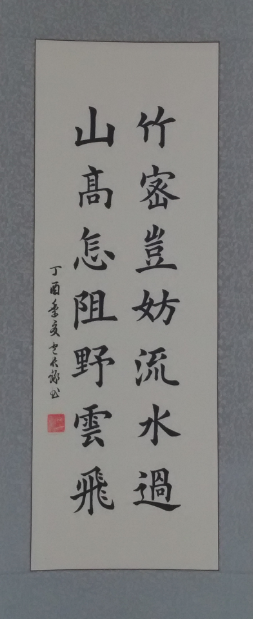 竹密豈妨流水過
山高怎阻野雲飛
丁酉年夏